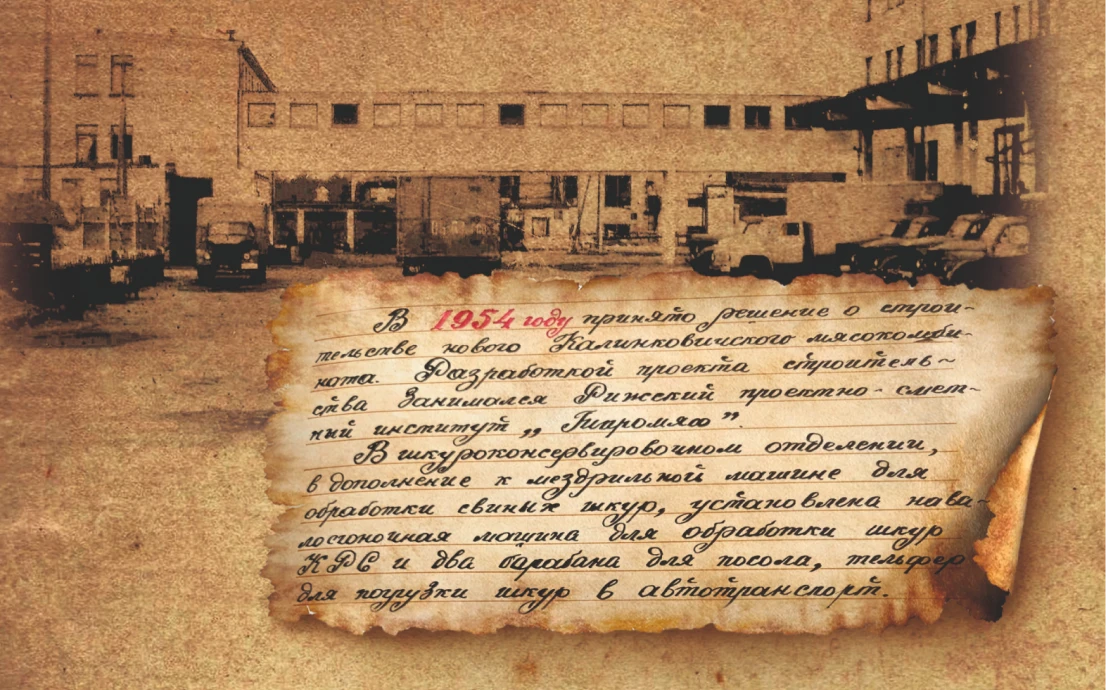 В 1954 году принято решение о строи-
тельстве нового Калинковичского мясокомби-
ната. Разработкой проекта строитель-
ства занимался Рижский проектно-смет-
ный институт „Гипромясо”.
В шкуроконсервировочном отделении,
в дополнение к мездрильной машине для
обработки свиных шкур, установлена нава-
лосгоночная машина для обработки шкур
КРС и два барабана для посола, тельфер
для погрузки шкур в автотранспорт.